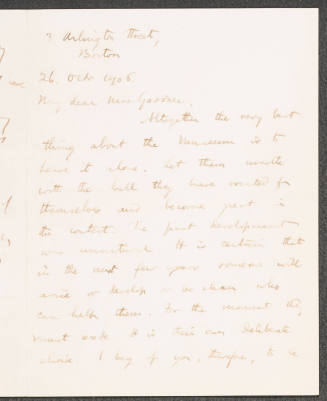 2 Arlington Street,
Boston
26. Oct. 1906
My dear Mrs Gardner.
Altogether the very best
thing about the Museum is to
leave it alone. Let them wrestle
with the bull they have
themselves and become great in
the contest. The past development
was unnatural. It is certain that
in the next few years someone will
arise or develop or be chosen who
can help them. For the moment they
must. It is their own deliberate
choice. I beg of you, therefore, to be